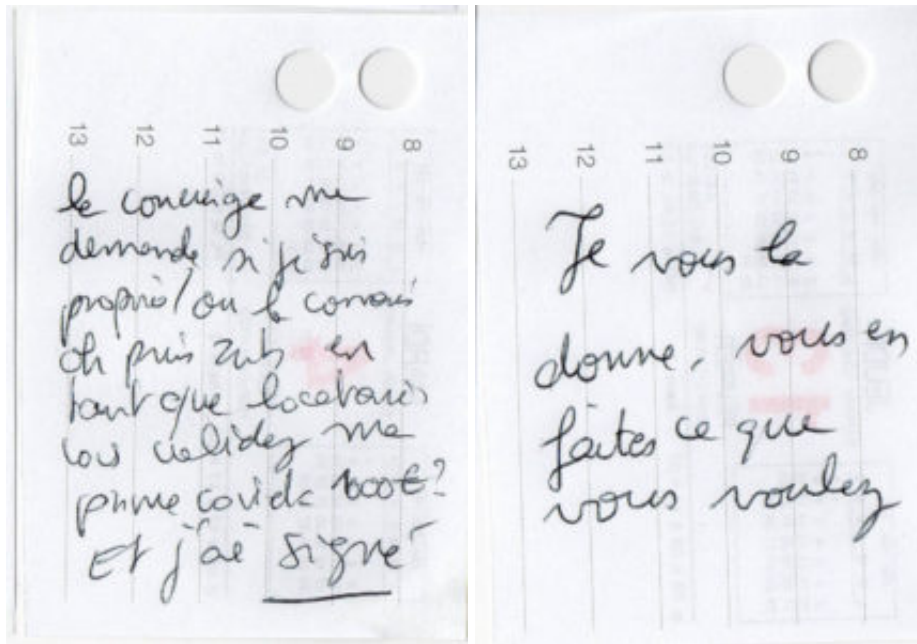 13 12 11 10 9 8
le concierge me
demande si je suis
proprio/ou le connais
oh puis zut en
tant que locataire
vous validez ma
prime covid de 1000€?
Et j'ai signé
13 12 11 10 9 8
Je vous la
donne, vous en
faites ce que
vous voulez